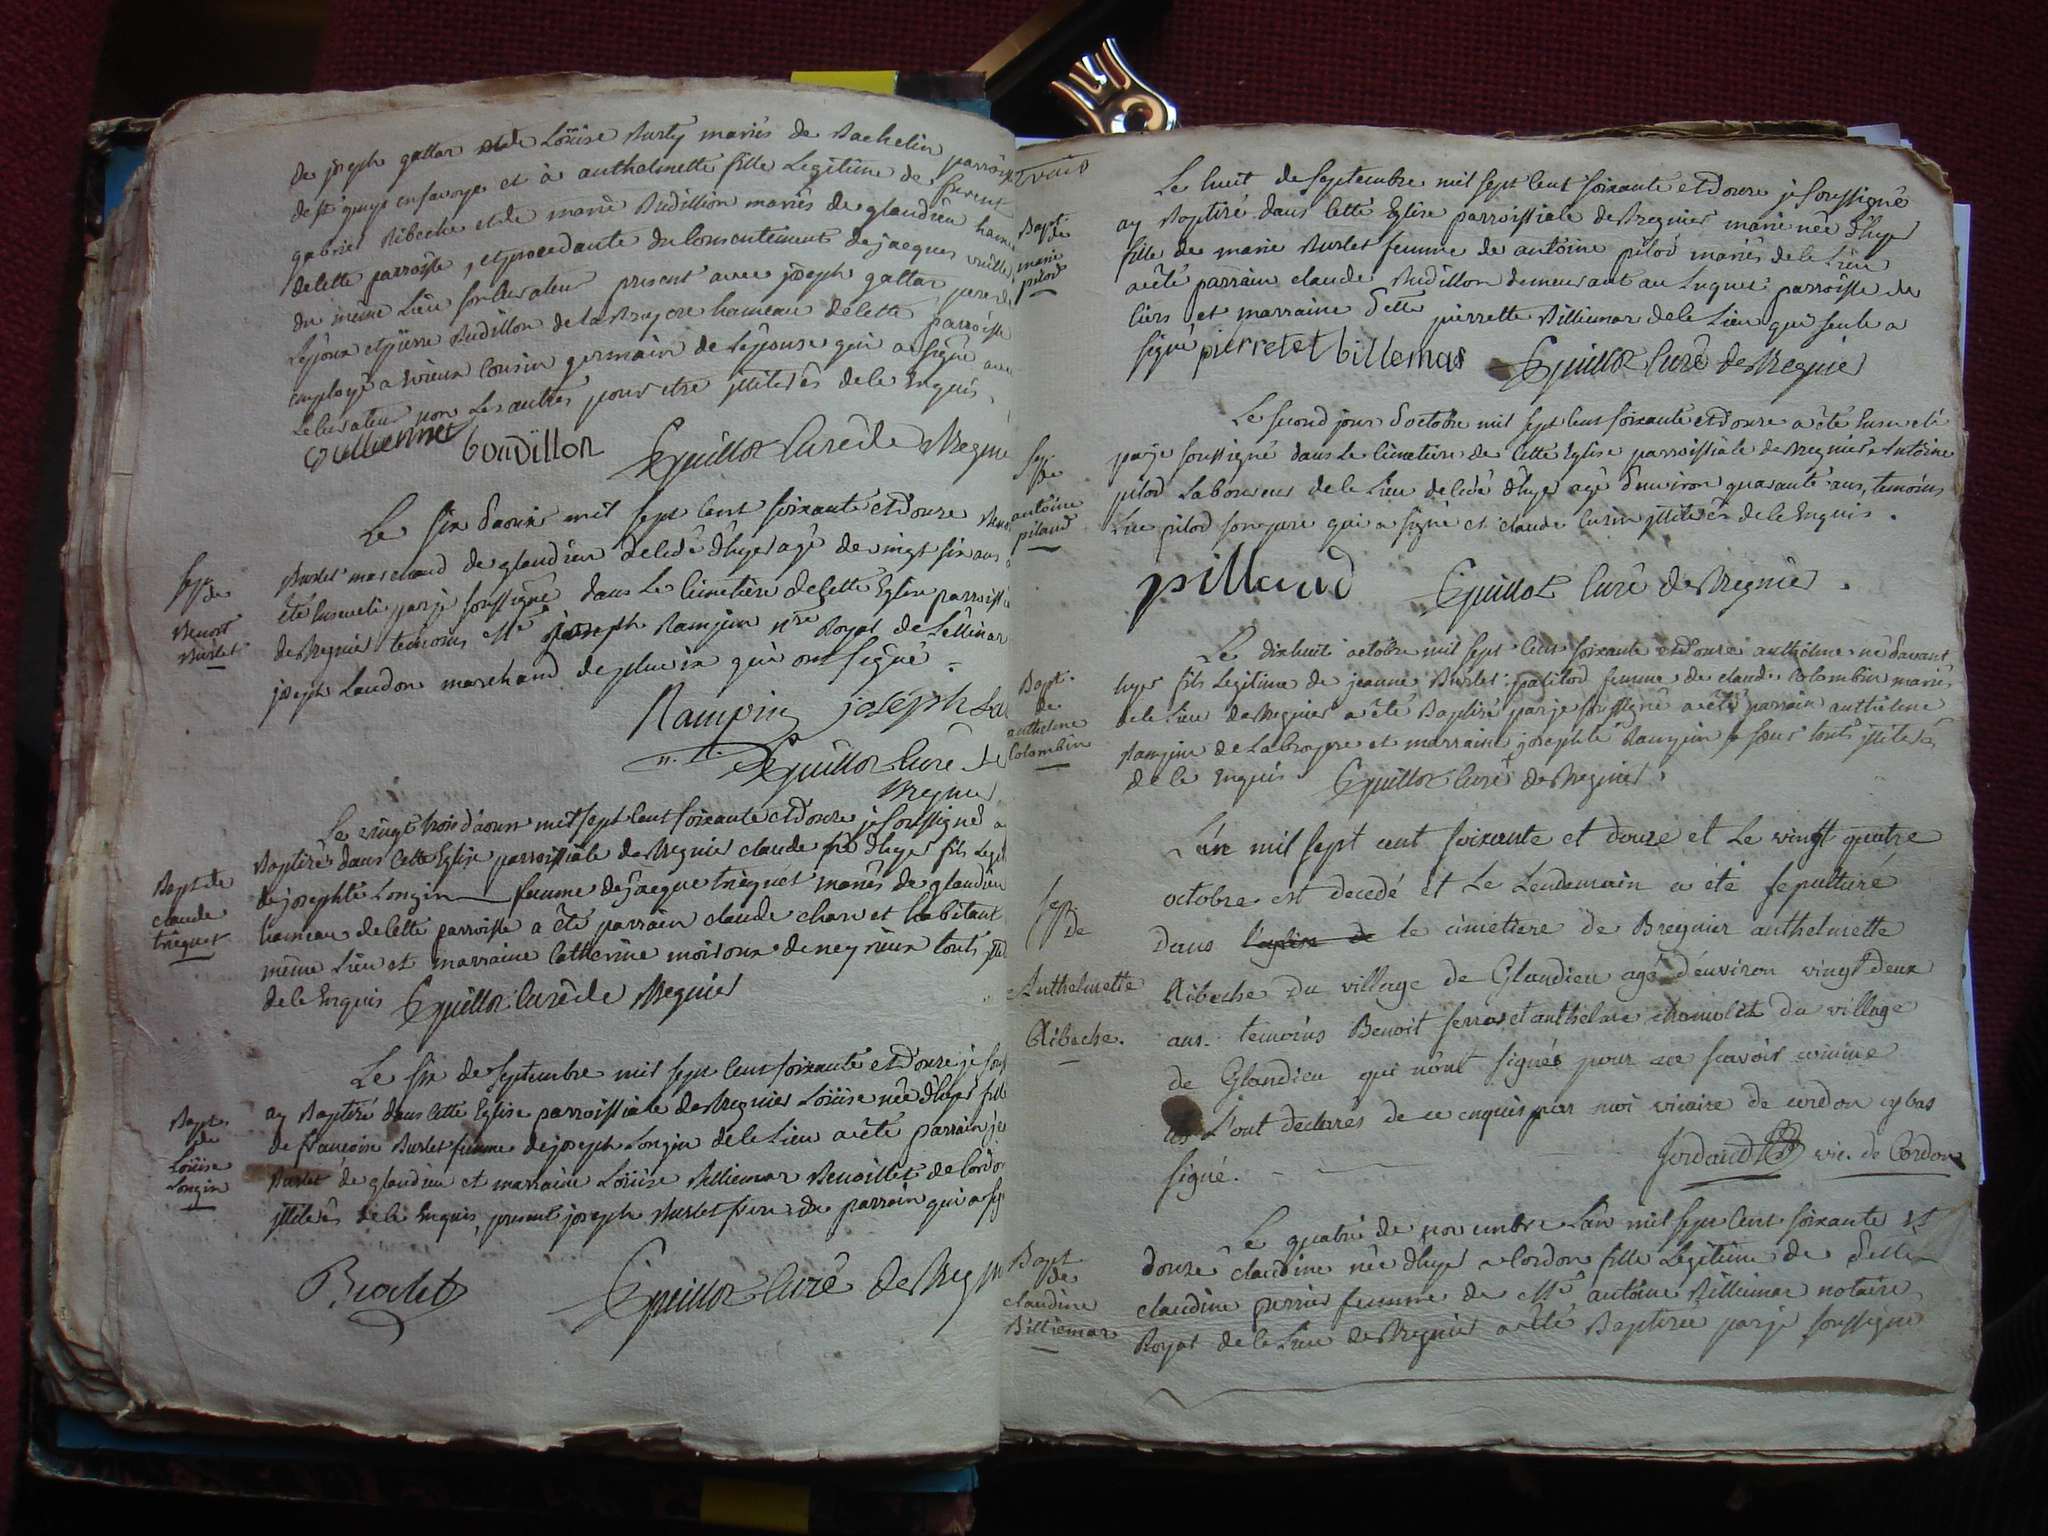 de joseph gattar et de Loüise Burty mariés de Bachelin parroisse
de st genys en savoye et à anthelmette fille Legitime de feu
gabriel Ribeche et de marie Budillion mariés de glandieu hameau
de cette parroisse, et procedante du Consentement de jacques
du même Lieu son Curateur present avec joseph gattar pere de
L'epoux et pierre Budillon de la Bruyere hameau de cette parroisse
employé a cousin germain de L'epouse qui a signé avec
Le Curateur non Les autres pour etre illiterés de ce Enquis.
Vulliermet boudillon Guillot Curé de Bregnier
Le six d'aoust mil sept cent soixante et Douze Benoit
Burlet marchand de glandieu decedé d'hyer agé de vingt six ans a
été Enseveli par je soussigné dans Le Cimetiere de cette Eglise parroissiale
de Bregnier temoins Me joseph Rampin nre Royal de
joseph Landon marchand de qui ont signé.
Rampin joseph La
n. r. Guillot Curé de
Bregnier
Le vingt trois d'aoust mil sept cent soixante et Douze je soussigné ay
Baptisé dans cette Eglise parroissiale de Bregnier claude né d'hyer fils Legit
de josephte Longin femme de jacque trequet mariés de glandieu
hameau de cette parroisse a été parrain claude charvet habitant
même Lieu et marraine Catherine moiroux de neyrieux touts illi
de ce Enquis Guillot Curé de Bregnier
Le six de septembre mil sept cent soixante et Douze je sous
ay Baptisé dans cette Eglise parroissiale de Bregnier Loüise née d'hyer fille
de francoise Burlet femme de joseph Longin de ce Lieu a été parrain
Burlet de glandieu et marraine Loüise Billiemaz de Cordon
illiterés de ce Enquis, present joseph Burlet frere du parrain qui a sig
Guillot Curé de Bregn
Sep.
de
Benoit
Burlet
Bapt de
claude
trequet
Bapt.
de
Loüise
Longin
trois
Le huit de septembre mil sept cent soixante et Douze je soussigné
ay Baptisé dans cette Eglise parroissiale de Bregnier marie née d'hyer
fille de marie Burlet femme de antoine pilod mariés de ce Lieu
a été parrain claude Budillon demeurant au Luquet parroisse de
liers et marraine Dlle pierrette Billiemaz de ce Lieu qui seule a
signé pierretet billemas Guillot Curé de Bregnier
Le second jour d'octobre mil sept cent soixante et Douze a été Enseveli
par je soussigné dans Le Cimetiere de cette Eglise parroissiale de Bregnier Antoine
pilod Laboureur de ce Lieu decedé d'hyer agé d'environ quarante ans, temoins
pilod son pere qui a signé et claude illiteré de ce Enquis.
pillaud Guillot Curé de Bregnier.
Le dixhuit octobre mil sept cent soixante et Douze anthelme né d'avant
hyer fils Legitime de jeanne Burlet femme de claude Colombin mariés
de ce Lieu de Bregnier a été Baptisé par je soussigné a été parrain anthelme
Rampin de La bruyere et marraine josephte Rampin sa sœur touts illiterés
de ce Enquis. Guillot Curé de Bregnier.
L'an mil sept cent soixante et douze et Le vingt quatre
octobre est decedé et Le Lendemain a eté sepulturé
dans l'eglise de le cimetiere de Bregnier anthelmette
Ribeche du village de Glandieu agé d'environ vingt deux
ans. temoins Benoit ferrar et anthelme chomulet du village
de Glandieu qui n'ont signés pour ne scavoir comme
ils L'ont declarés de ce enquis par moi vicaire de cordon cy bas
signé. Jordand vic. de Cordon
Le quatre de novembre L'an mil sept cent soixante et
douze claudine née d'hyer a Cordon fille Legitime de Delle
claudine perrier femme de Me antoine Billiemaz notaire
Royal de ce Lieu de Bregnier a été Baptisée par je soussigné
Bapt.
de
marie
pilod
Sep.
de
antoine
pilaud
Bapt.
de
anthelme
Colombin
Sep.
de
Anthelmette
Ribeche.
Bapt
de
claudine
Billiemaz